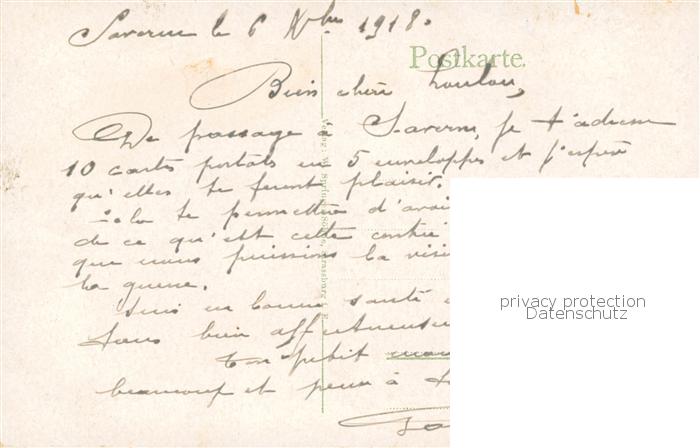 Saverne le 6 Nbre 1918.
Postkarte.
Bien chère Loulou,
De passage à Saverne, je t'adresse
10 cartes postales en 5 enveloppes et j'espère
qu'elles te feront plaisir.
Cela te permettra d'avoi
de ce qu'est cette contré
que nous puissions la visi
la guerre.
Suis en bonne santé
bien affectueuse
Ton petit
beaucoup et pense à
privacy protection
Datenschutz